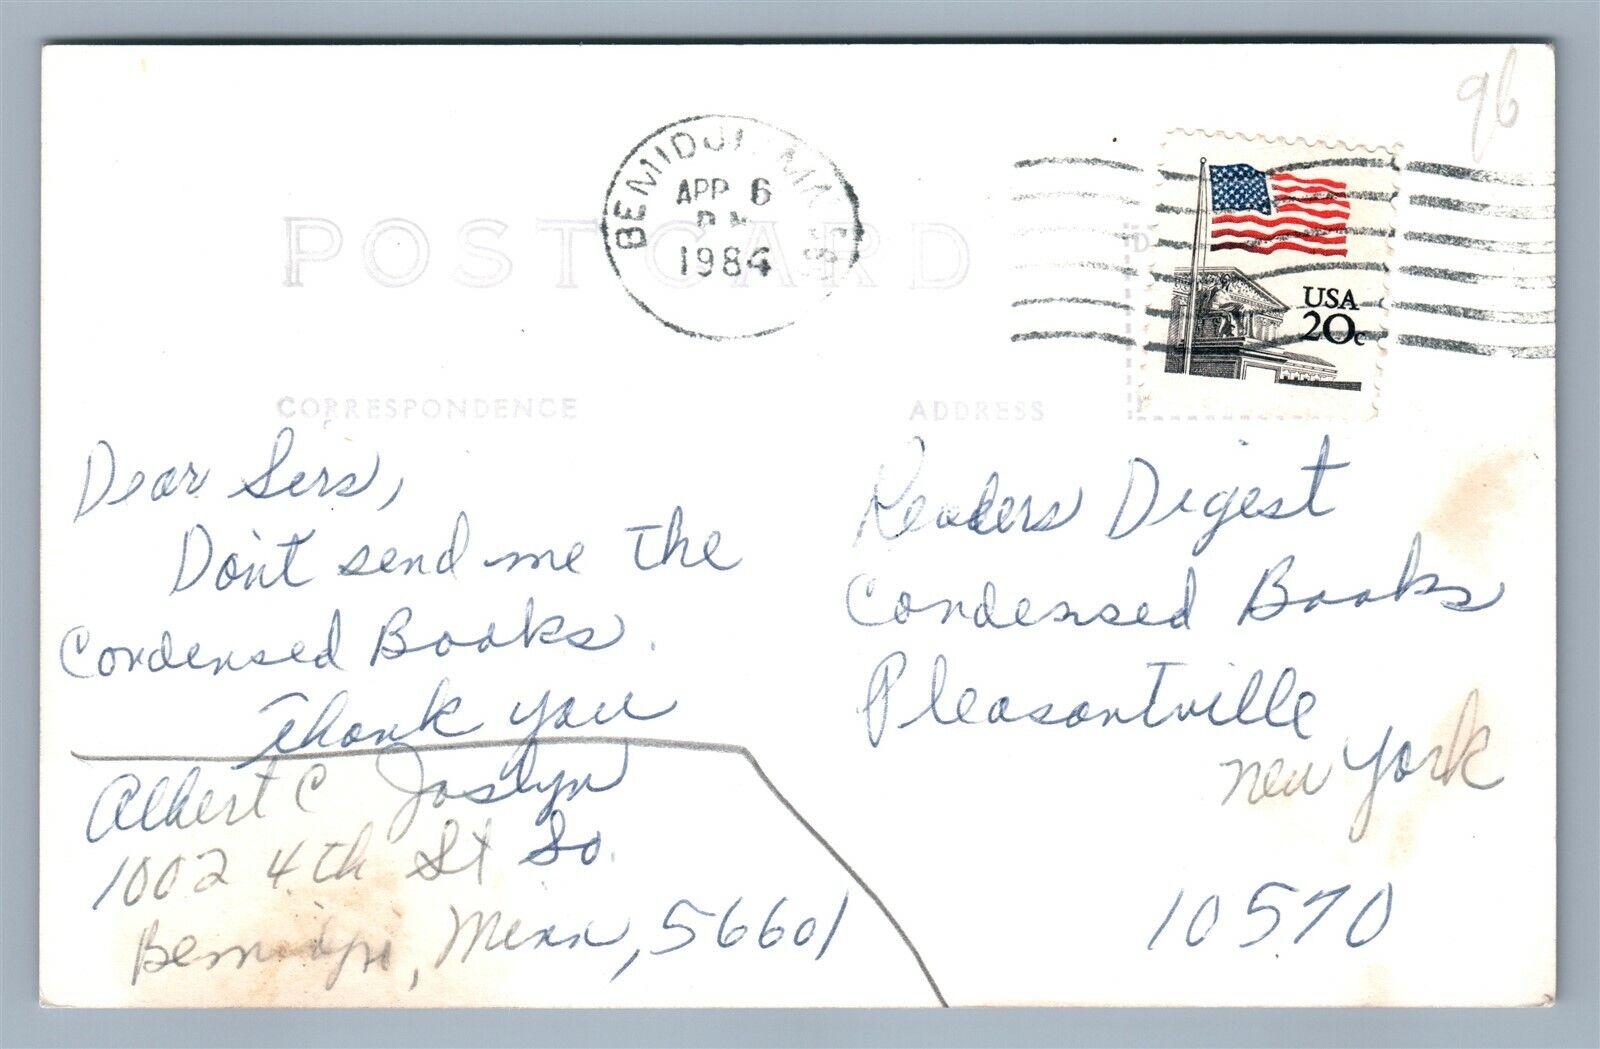 96
BEMIDJI, MN
APR 6
PM
1984
USA
20c
POST CARD
CORRESPONDENCE
ADDRESS
Dear Sirs,
Don't send me the
Condensed Books.
Thank you
Albert C Joslyn
1002 4th St So.
Bemidji, Minn, 56601
Readers Digest
Condensed Books
Pleasantville
New York
10570